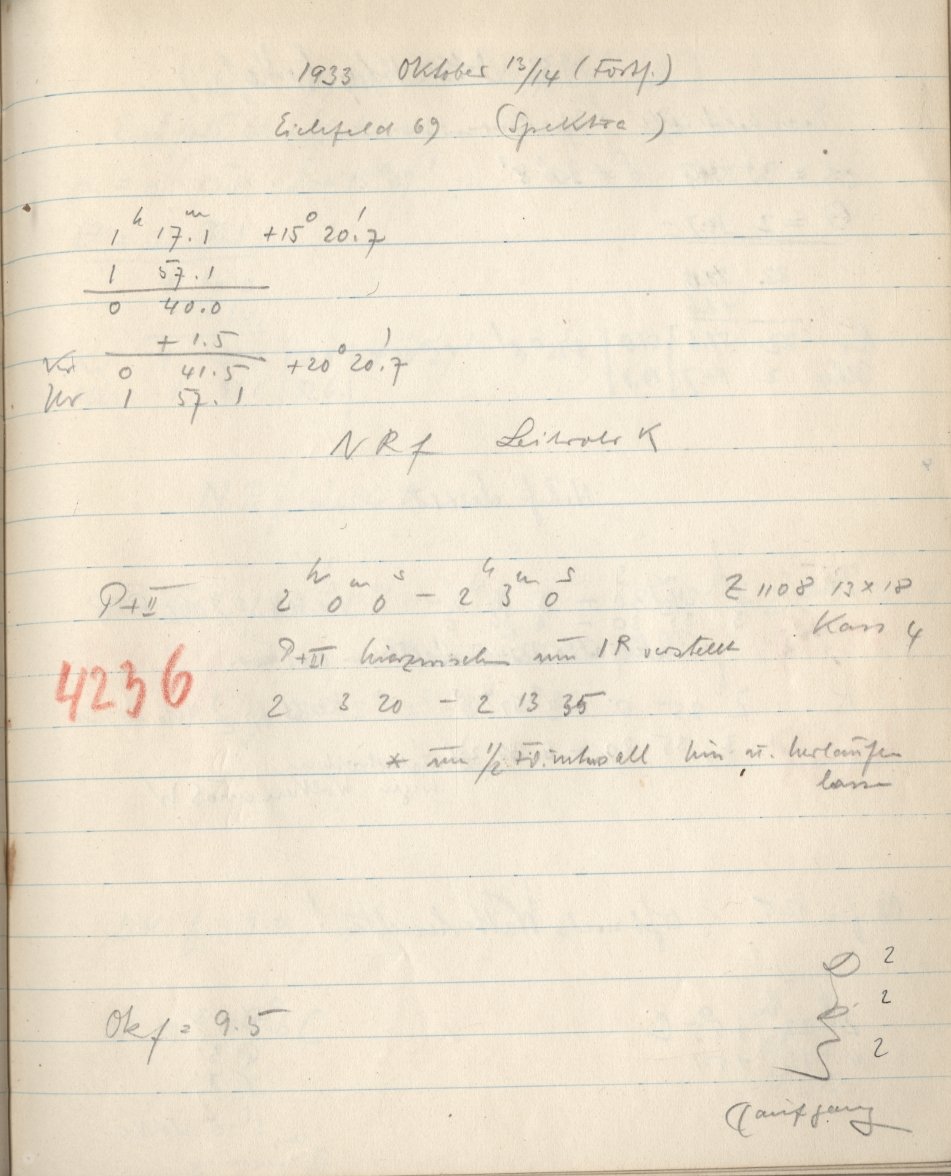 1933 Oktober 13/14 (Forts.)
Eichfeld 69 (Spektra)
1h 17m.1 +15° 20'.7
1 57.1
0 40.0
+ 1.5
0 41.5 +20° 20'.7
Uhr 1 57.1
N R f Leitrohr K
P+II 2h 0m 0s - 2h 3m 0s Z 1108 13×18
Kass 4
P+II hierzwischen um 1R verstellt
4236
2 3 20 - 2 13 35
* um 1/2 hin u. herlaufen
lassen
Okf = 9.5
2
2
2
☾ aufgang